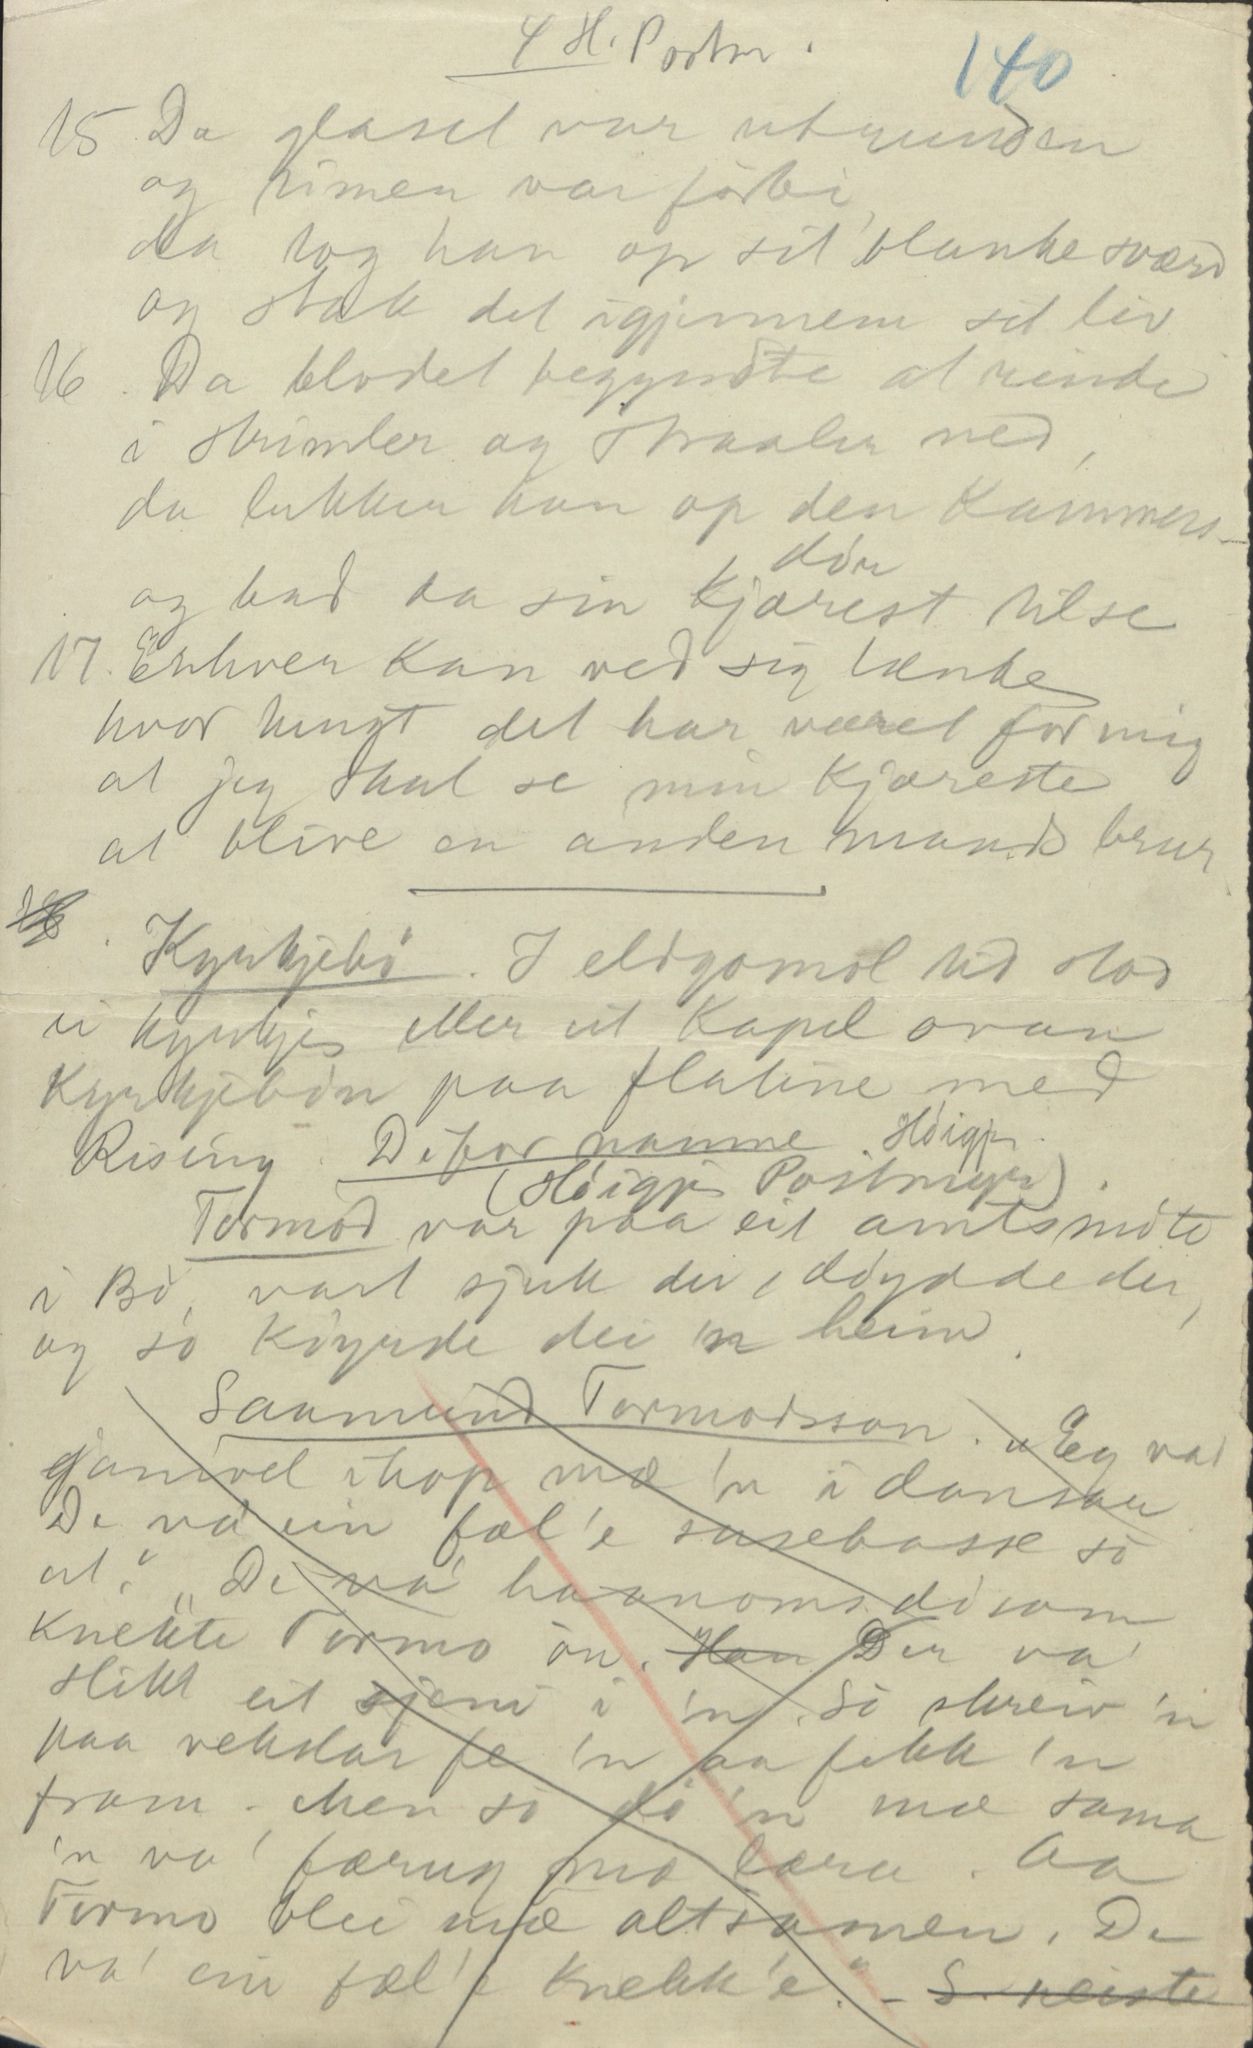 4 H. Postm.
140
15 Da glaset var utrunden
og timen var forbi,
da tog han op sit blanke sværd
og stak det igjennem sit liv
16. Da blodet begyndte at rinde
i strimler og straaler ned,
da lukker han op den Kammers-
dör
og bad da sin Kjærest hilse
17. Enhver Kan ved sig tænke
hvor tungt det har været for mig
at jeg skal se min Kjæreste
at blive en anden mands brur
18.
Kyrkjebö. I eldgamol tid stod
ei kyrkje eller eit Kapel ovan
Kyrkjeböen paa flatine med
Rising. Defor namne Höigje
(Höigje Postmyr).
Tormod var paa eit amtsmöte
i Bö, vart sjuk der, döydde der,
og so köyrde dei 'n heim.
Saamund Tormodsson. "Eg va'
gjanivel ihop mæ 'n i dansen
De va ein fæl'e susebasse so
at." "De va' haanoms dö som
knekte Tormo ön. Han Der va'
slikt eit sjeni i 'n. So skreiv 'n
paa vekslar fe 'n aa fekk 'n
fram. Men so dö 'n mæ sama
'n va' færug mæ læra. Aa
Tormo blei mæ altsamen. De
va' ein fæl'e knekk'e." - S. reiste